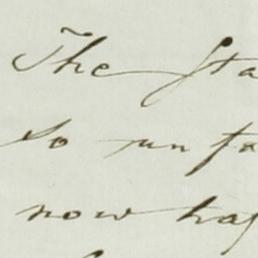 The Sta
So un fa
now has